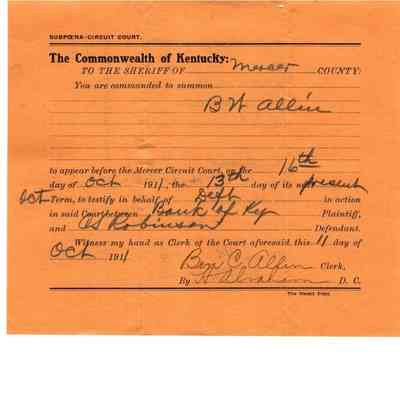 SUBPŒNA—CIRCUIT COURT.
The Commonwealth of Kentucky:
TO THE SHERIFF OF Mercer COUNTY:
You are commanded to summon
B W Allin
to appear before the Mercer Circuit Court, on the 16th
day of Oct 1911, the 13th day of its present
Oct Term, to testify in behalf of Deft in action
in said Court between Bank of Ky Plaintiff,
and CS Robinson Defendant.
Witness my hand as Clerk of the Court aforesaid, this 11 day of
Oct 1911
Ben C. Allin Clerk,
By Abraham D. C.
The Herald Print.